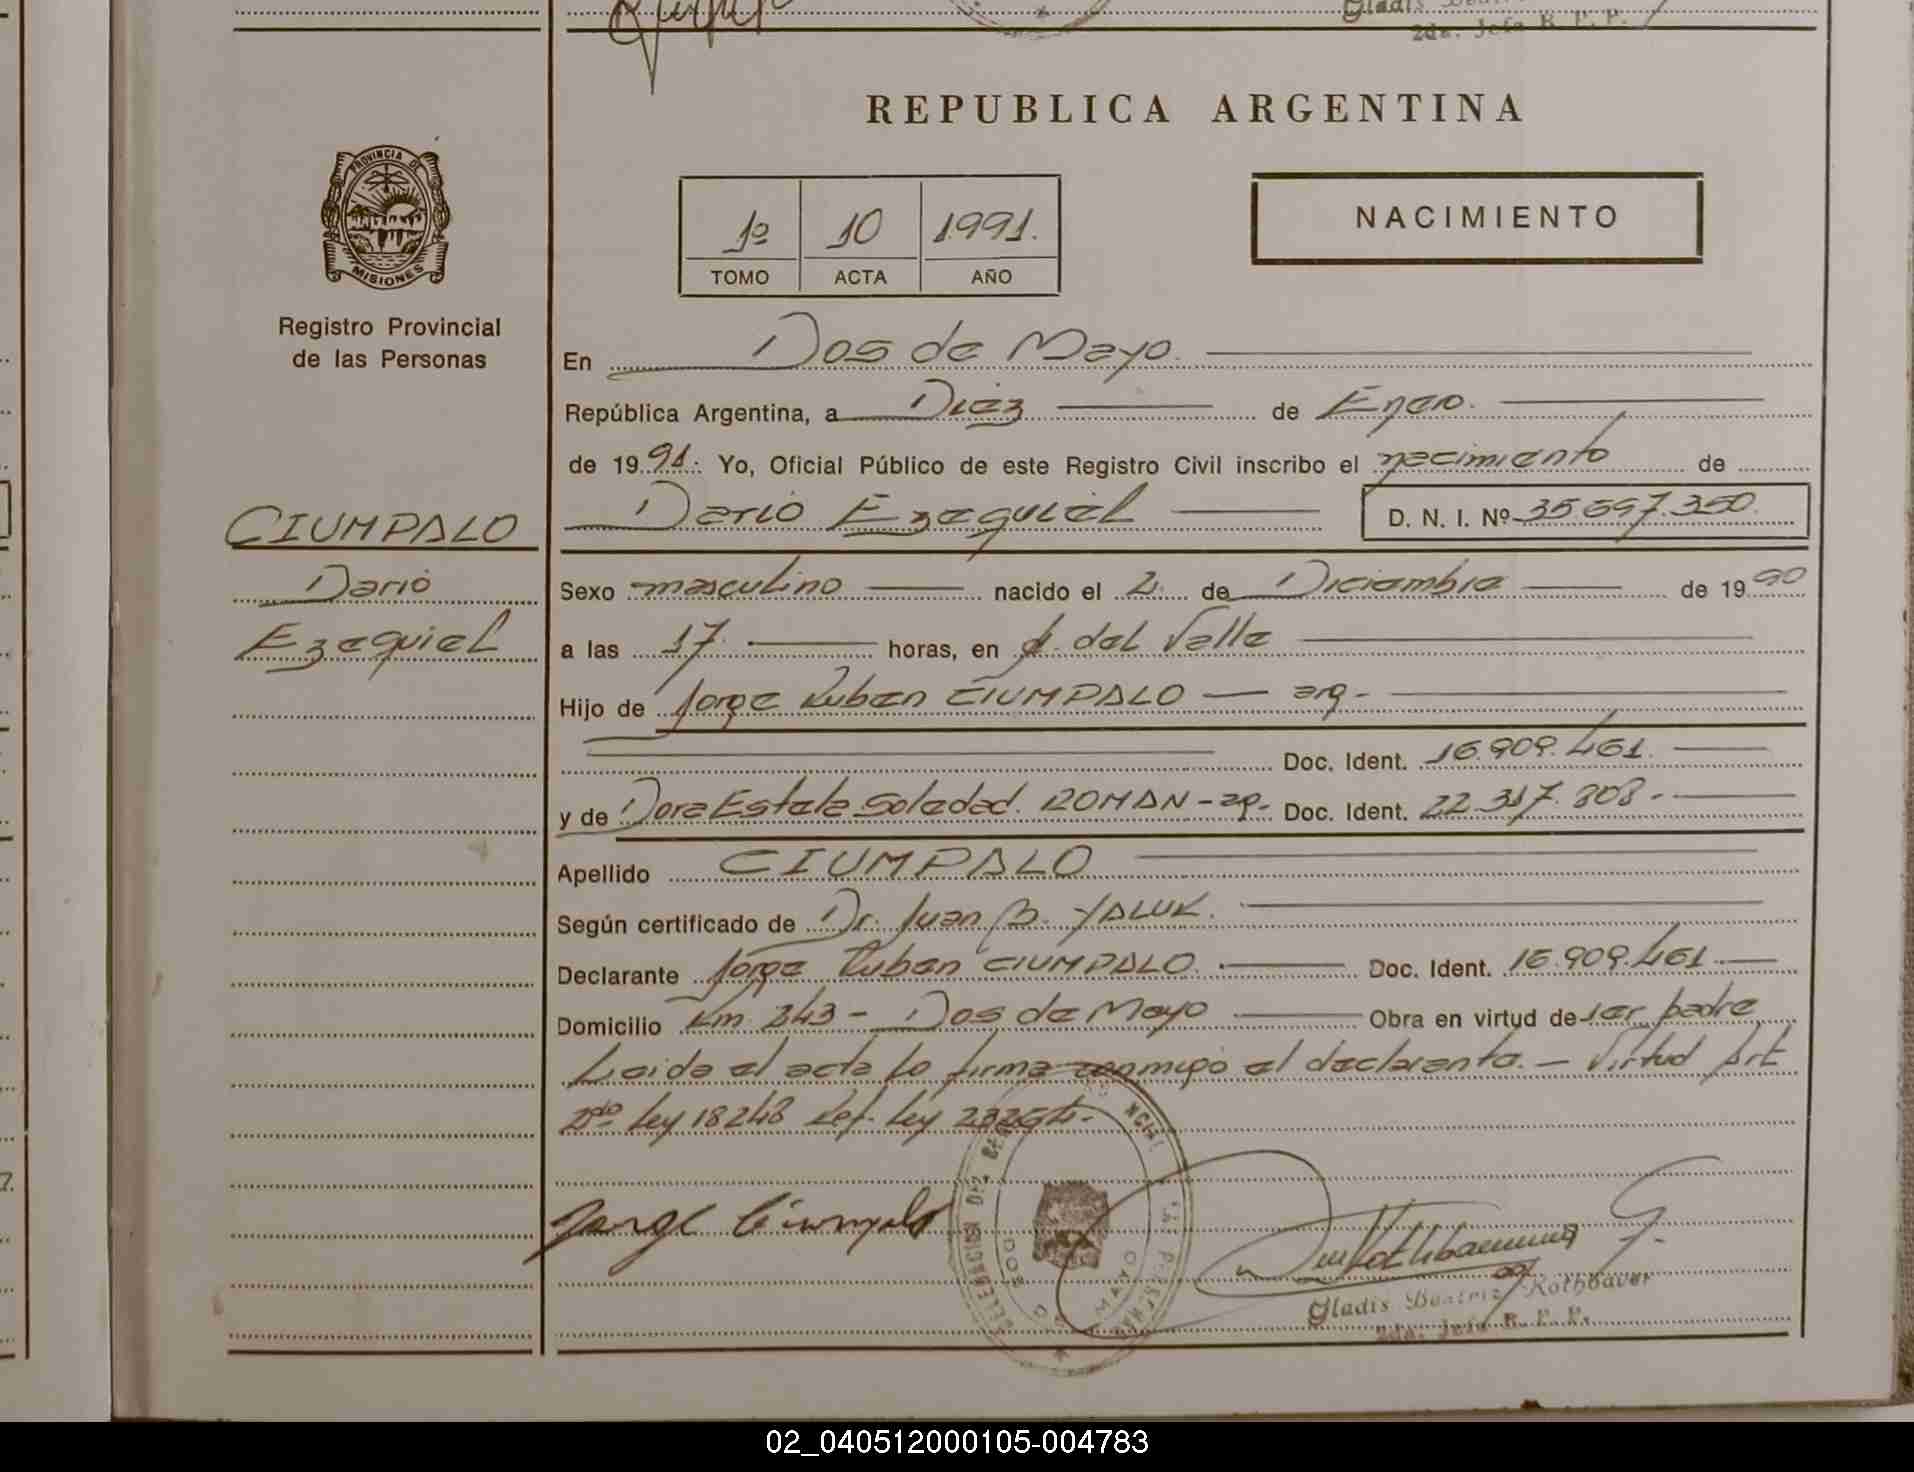 Gladis
2da. Jefa R. P. P.
REPUBLICA ARGENTINA
PROVINCIA DE
MISIONES
Registro Provincial
de las Personas
1º 10 1991.
TOMO ACTA AÑO
NACIMIENTO
En Dos de Mayo.
República Argentina, a Diez de Enero.
de 1991. Yo, Oficial Público de este Registro Civil inscribo el nacimiento de
Dario Ezequiel D. N. I. Nº 35.597.350
CIUMPALO
Dario
Ezequiel
Sexo masculino nacido el 2 de Diciembre de 1990
a las 17 horas, en A. del Valle
Hijo de Jorge Ruben CIUMPALO — arg-
Doc. Ident. 16.909.461.
y de Dora Estela Soledad ROMAN - arg- Doc. Ident. 22.317.808.-
Apellido CIUMPALO
Según certificado de Dr. Juan B. YALUK.
Declarante Jorge Ruben CIUMPALO. Doc. Ident. 16.909.461.
Domicilio Km 243 - Dos de Mayo Obra en virtud de ser padre
Leida el acta la firma conmigo el declarante. - Virtud Art
2do Ley 18248 Ley
Jorge Ciumpalo
DOS DE MAYO
Gladis Beatriz Rothbauer
2da. Jefa R. P. P.
02_040512000105-004783